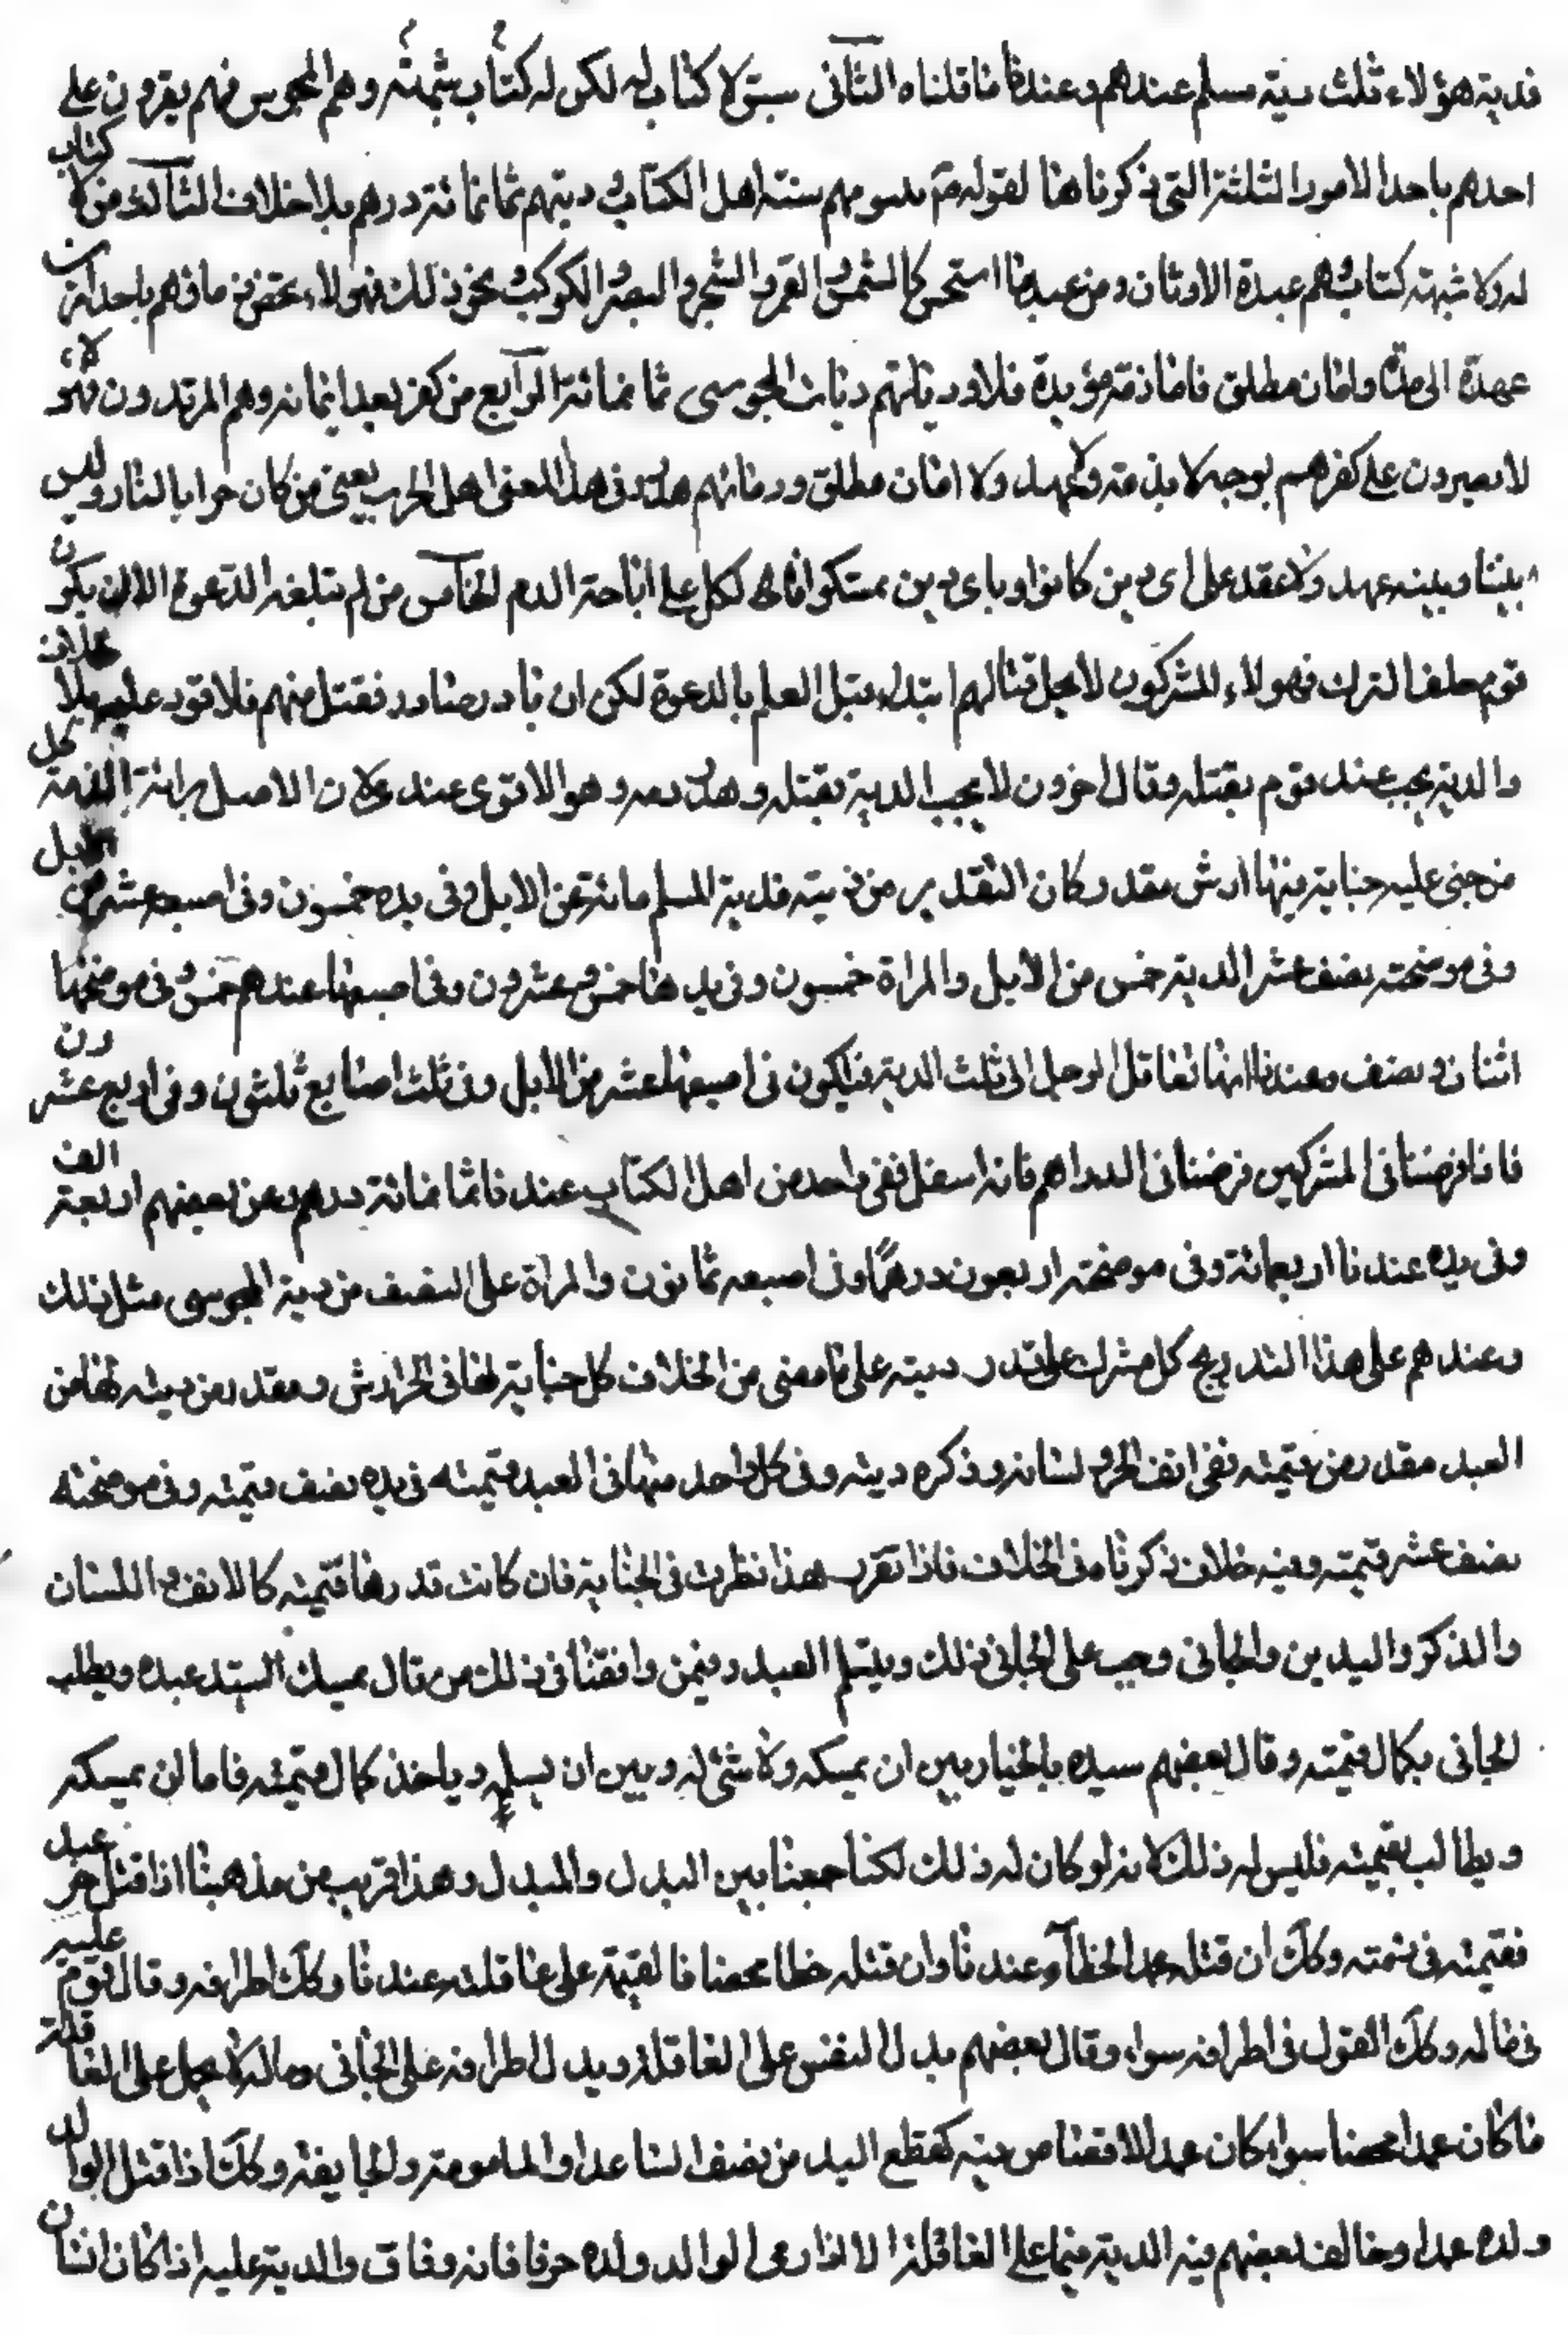 فدية هؤلاء ثلث دية مسلم عندهم وعندنا ما قلناه الثانى لا كتاب له لكن له كتاب شبهته وهم المجوس فهم يقرون على
احدهم باحد الامور الثلثة التى ذكرناها لقوله ع سنة اهل الكتاب و ديتهم ثمانمائة درهم بلا خلاف الثالث من لا كتاب
له ولا شبهة كتاب وهم عبدة الاوثان ومن عبد ما استحسن كالشمس و القمر و الشجر و البقر و الكوكب و نحو ذلك فهولاء دمائهم باحد امرين
عهدة الى مدة و امان مطلق فاما ذمة مؤبدة فلا و ديتهم ديات المجوسى ثمانمائة الرابع من كفر بعد ايمانه وهم المرتدون فهؤلاء
لا على كفرهم بوجه لا بذمة ولا عهد ولا امان مطلق و دمائهم هدر وفى هذا المعنى اهل الحرب يعنى من كان حرابا لنا و ليس
بيننا وبينه عهد ولا عقد على اى دين كانوا و باى دين تمسكوا فالكل على اباحة الدم الخامس من لم تبلغه الدعوة الا ان يكون
قوم خلف الترك فهولاء المشركون لا يحل قتالهم ابتداء قبل العلم بالدعوة لكن ان بادر فقتل منهم فلا قود عليه بلا خلاف
والدية يجب عند قوم بقتله وقال اخرون لا يجب الدية بقتله و هدر دمه و هو الاقوى عندى لان الاصل برائة الذمة كل
من جنى عليه جناية فيها ارش مقدر كان التقدير من ديته فدية المسلم مائة من الابل وفى يده خمسون وفى اصبعه عشر من الابل
وفى موضحته نصف عشر الدية خمس من الابل والمراة خمسون وفى يدها خمس و عشرون وفى اصبعها عندهم خمس و فى موضحتها
اثنان و نصف وعندنا انها تعاقل الرجل الى ثلث الدية فيكون فى اصبعها عشر من الابل وفى ثلث اصابع ثلثون وفى اربع عشرون
فاذا فرضنا فى المشركين فرضنا فى الدراهم فانه اسهل ففى واحد من اهل الكتاب عندنا ثمانمائة درهم وعن بعضهم اربعة الف
وفى يده عندنا اربعمائة وفى موضحته اربعون درهما وفى اصبعه ثمانون والمراة على النصف من دية المجوسى مثل ذلك
وعندهم على هذا التدريج كل مشرك على قدر ديته على ما مضى من الخلاف كل جناية لها فى الحر ارش مقدر من ديته لها من
العبد مقدر من قيمته ففى انف الحر و لسانه وذكره ديته وفى كل واحد منها فى العبد قيمته فى يده نصف قيمته وفى موضحته
نصف عشر قيمته وفيه خلاف ذكرنا فى الخلاف فاذا تقرر هذا نظرت فى الجناية فان كانت قدرها قيمته كالانف و اللسان
والذكر واليدين والجانى وجب على الجانى ذلك ويتسلم العبد وفيمن وافقنا فى ذلك من قال يمسك السيد عبده ويطلب
الجانى بكمال قيمته وقال بعضهم سيده بالخيار بين ان يمسكه ولا شئ له وبين ان يسلمه وياخذ كمال قيمته فاما ان يمسكه
ويطالب بقيمته فليس له ذلك لانه لو كان له ذلك لكنا جمعنا بين البدل والمبدل وهذا قريب من مذهبنا اذا قتل حر عبدا
فقيمته فى ذمته وكك ان قتله عمد الخطأ عندنا وان قتله خطا محضا فالقيمة على عاقلته عندنا وكك اطرافه وقال قوم عليه
فى ماله وكك القول فى اطرافه سواء وقال بعضهم بدل النفس على العاقلة و بدل اطرافه على الجانى وماله لا يحمل على العاقلة
ما كان عمدا محضا سواء كان عمدا لا قصاص فيه كقطع اليد من نصف الساعد او المامومة والجايفة وكك اذا قتل الوالد
ولده عمدا وخالف بعضهم فيه الدية على العاقلة الوالد ولده والدية عليه اذا كان انسان